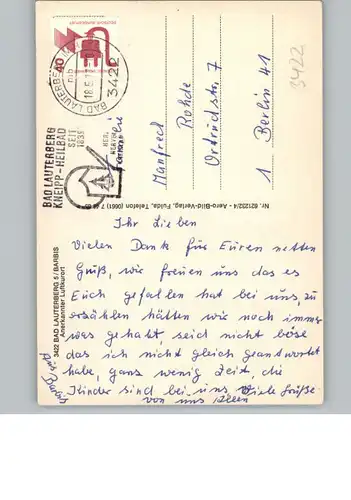 40
DEUTSCHE BUNDESPOST
BAD LAUTERBERG
3422
BAD LAUTERBERG
KNEIPP-HEILBAD
SEIT
1839
3422
Familie
Manfred
Rohde
Ortrudstr 7
1 Berlin 41
Nr. 621202/4 - Aero-Bild-Verlag, Fulda, Telefon (0661) 7
3422 BAD LAUTERBERG 5 / BARBIS
Anerkannter Luftkurort
Ihr Lieben
Vielen Dank für Euren netten
Gruß, wir freuen uns das es
Euch gefallen hat bei uns, zu
erzählen hätten wir noch immer
was gehabt, seid nicht böse
das ich nicht gleich geantwortet
habe, ganz wenig Zeit, die
Kinder sind bei uns Viele Grüße
von uns Allen